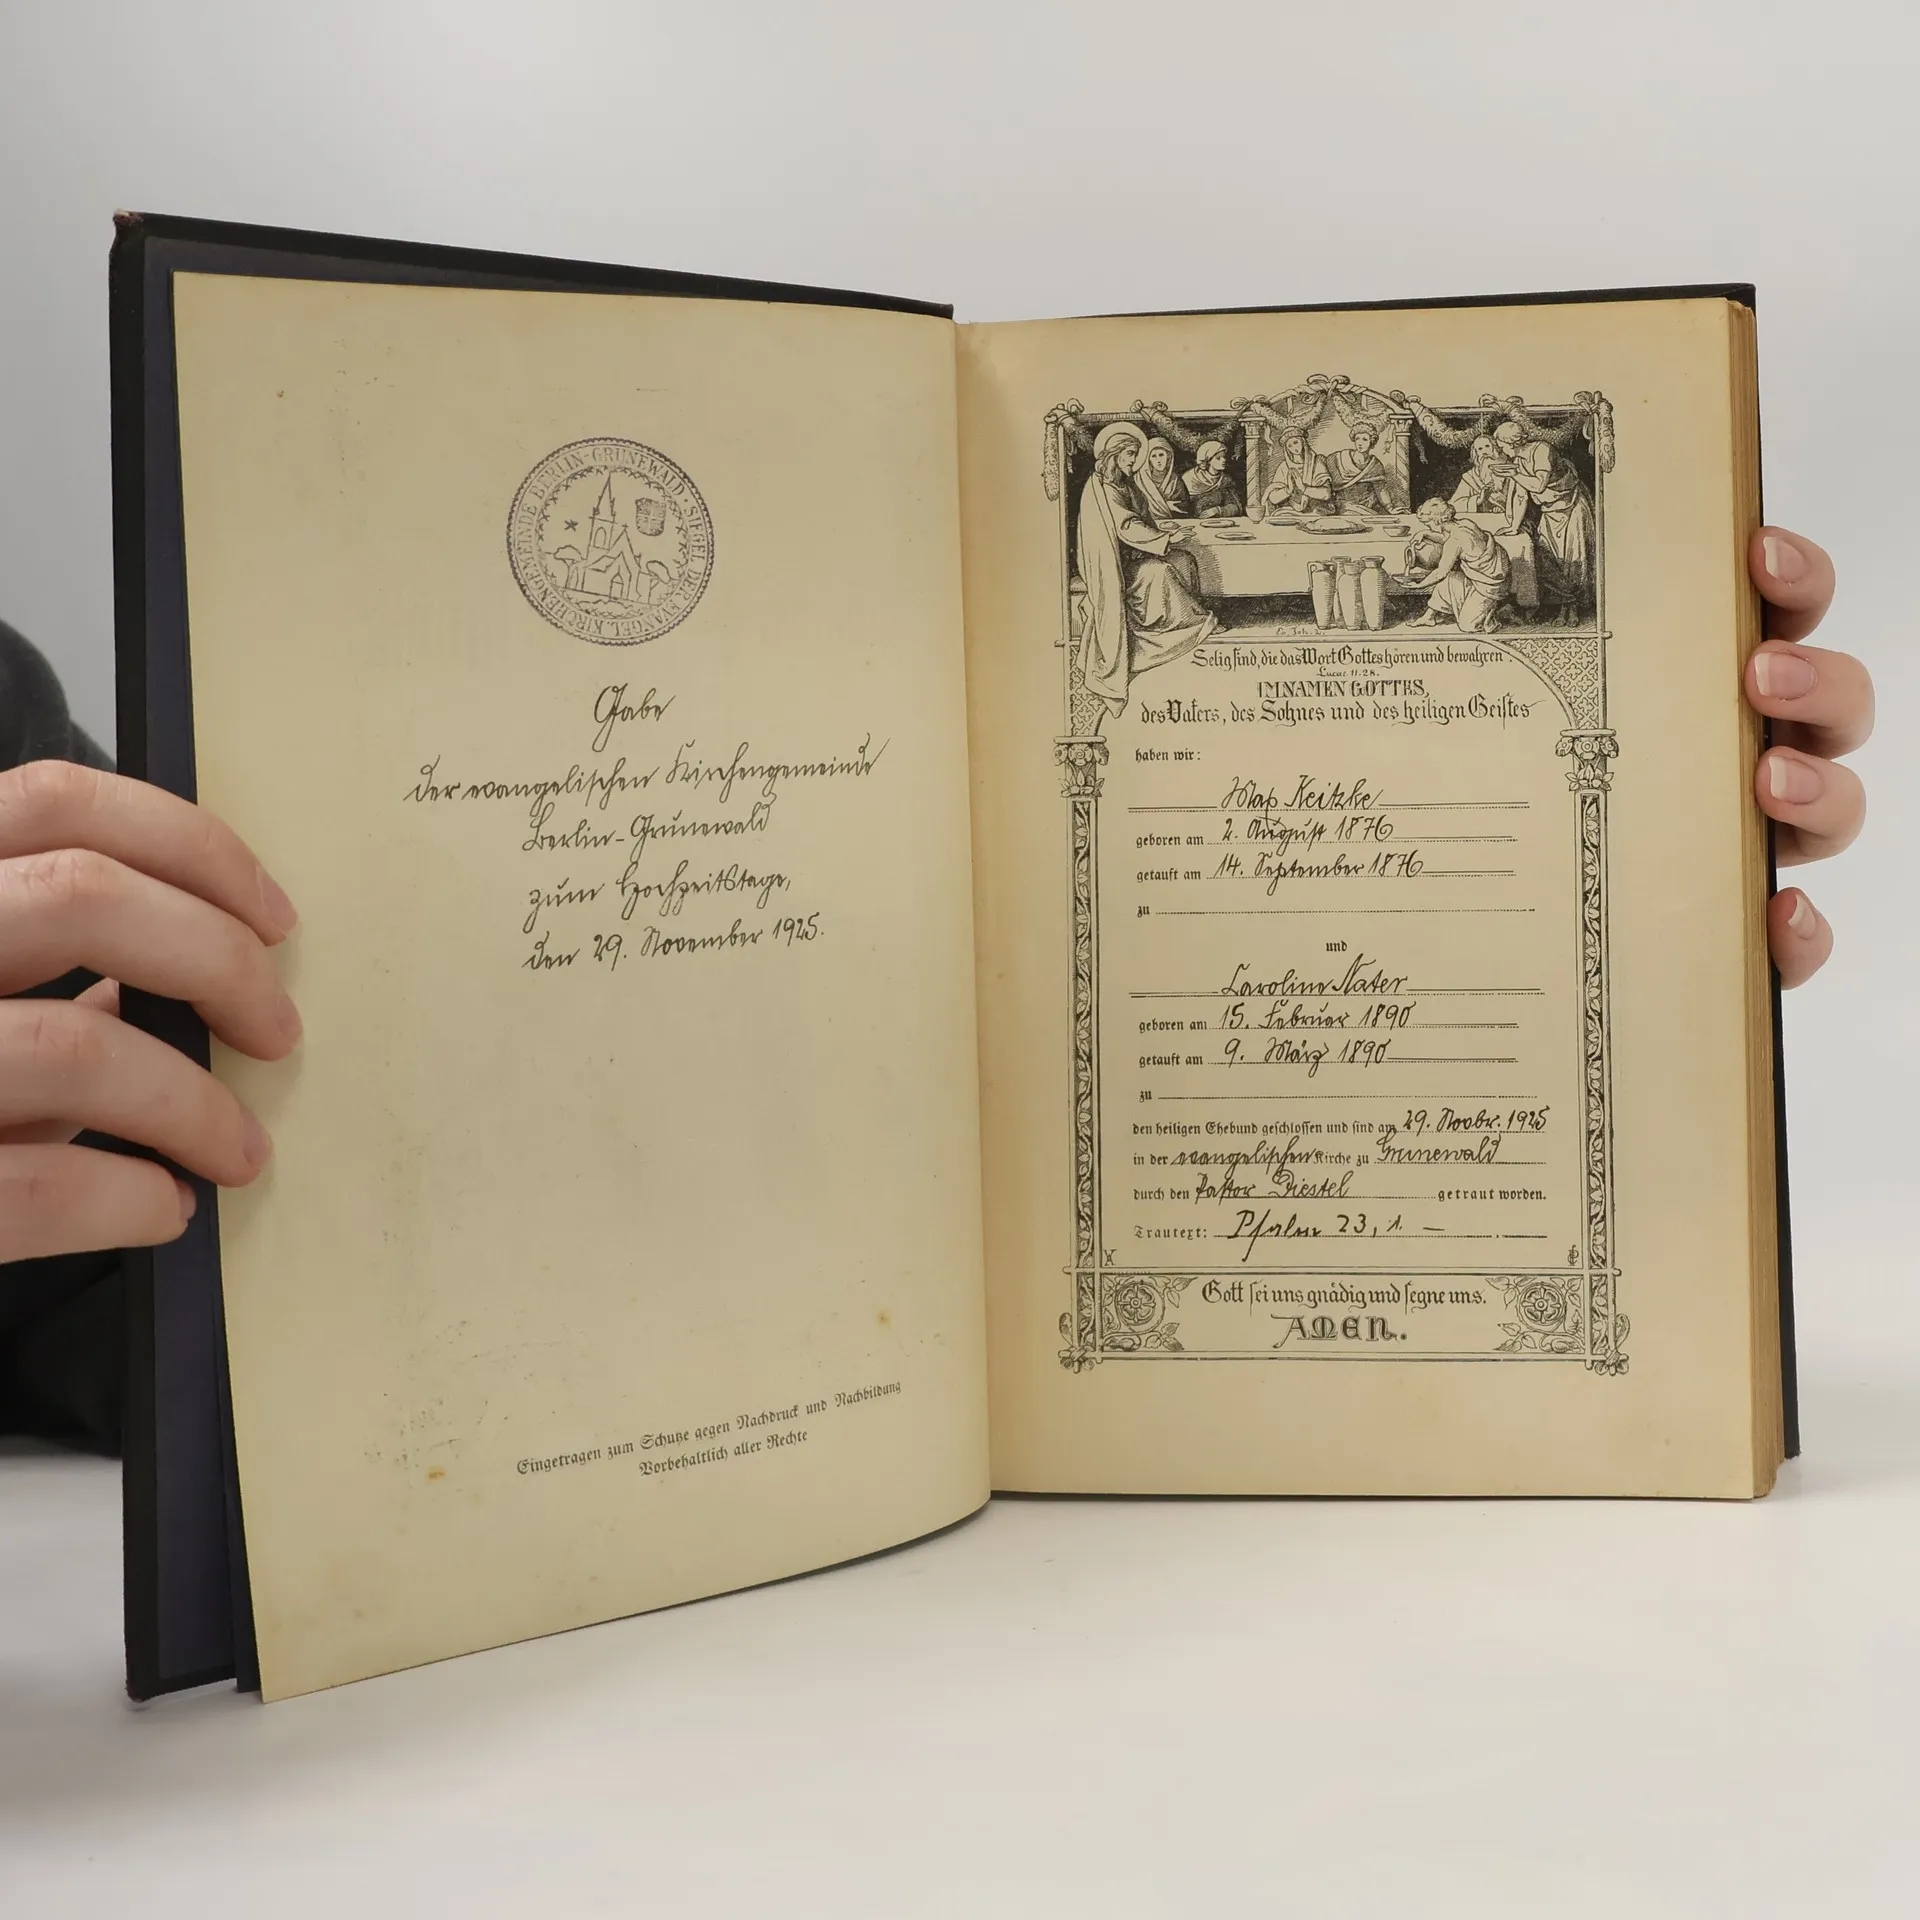 SIEGEL DER EVANGEL. KIRCHENGEMEINDE BERLIN-GRUNEWALD
Gabe
der evangelischen Kirchengemeinde
Berlin-Grunewald
zum Hochzeitstage,
den 29. November 1925.
Eingetragen zum Schutze gegen Nachdruck und Nachbildung
Vorbehaltlich aller Rechte
Ev. Joh. 2.
Selig sind, die das Wort Gottes hören und bewahren.
Lucae 11.28.
IM NAMEN GOTTES,
des Vaters, des Sohnes und des heiligen Geistes
haben wir:
Max Keitzke
geboren am 2. August 1876
getauft am 14. September 1876
zu
und
Caroline Nater
geboren am 15. Februar 1890
getauft am 9. März 1890
zu
den heiligen Ehebund geschlossen und sind am 29. Novbr. 1925
in der evangelischen Kirche zu Grunewald
durch den Pastor Diestel getraut worden.
Trautext: Psalm 23, 1. —
Gott sei uns gnädig und segne uns.
AMEN.